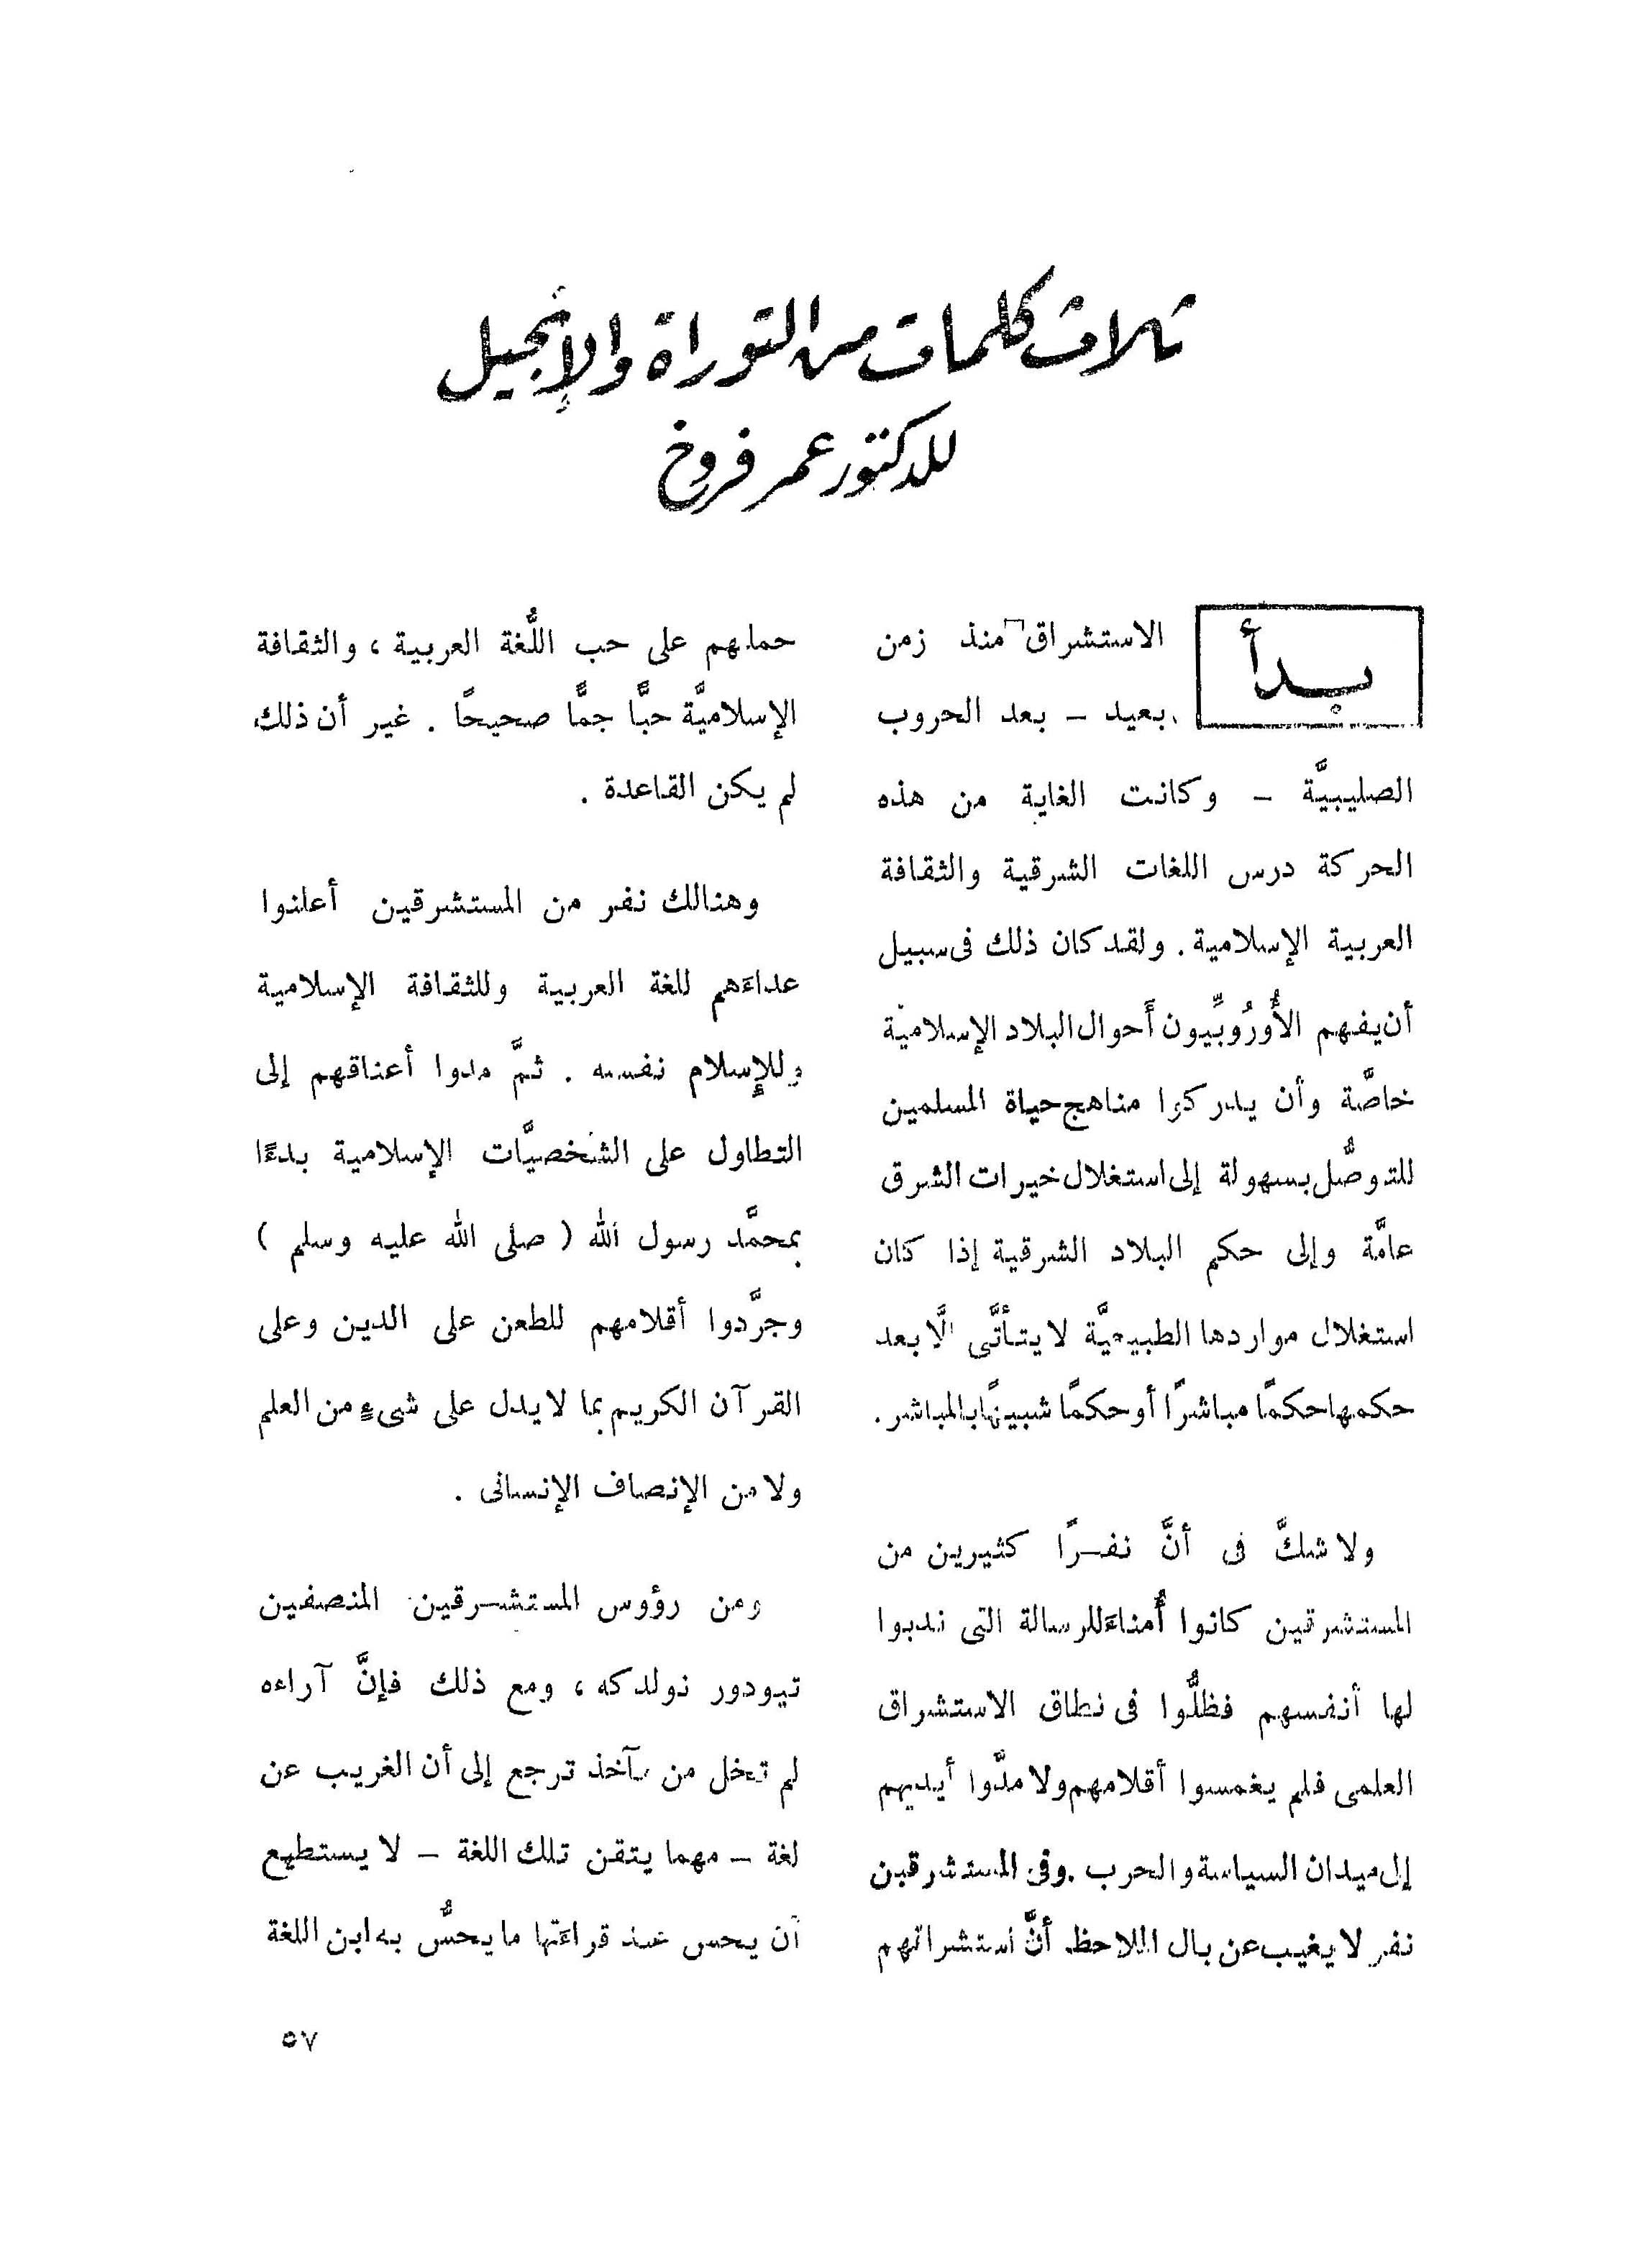 ثلاث كلمات من التوراة والإنجيل
للدكتور عمر فروخ
بدأ
الاستشراق منذ زمن
بعيد – بعد الحروب
الصليبيَّة – وكانت الغاية من هذه
الحركة درس اللغات الشرقية والثقافة
العربية الإسلامية. ولقد كان ذلك فى سبيل
أن يفهم الأُورُوبِّيون أَحوال البلاد الإسلاميَّة
خاصَّة وأن يدركوا مناهج حياة المسلمين
للتوصُّل بسهولة إلى استغلال خيرات الشرق
عامَّة وإلى حكم البلاد الشرقية إذا كان
استغلال مواردها الطبيعيَّة لا يتأتَّى الَّا بعد
حكمها حكمًا مباشرًا أو حكمًا شبيهًا بالمباشر.
ولا شكَّ فى أنَّ نفرًا كثيرين من
المستشرقين كانوا أُمناءَ للرسالة التى ندبوا
لها أنفسهم فظلُّوا فى نطاق الاستشراق
العلمى فلم يغمسوا أقلامهم ولا مدُّوا أيديهم
إلى ميدان السياسة والحرب. وفى المستشرقين
نفر لا يغيب عن بال الملاحظ أنَّ استشراقهم
حملهم على حب اللُّغة العربية، والثقافة
الإسلاميَّة حبًّا جمًّا صحيحًا. غير أن ذلك
لم يكن القاعدة.
وهنالك نفر من المستشرقين أعلنوا
عداءَهم للغة العربية وللثقافة الإسلامية
وللإسلام نفسه. ثمَّ مدوا أعناقهم إلى
التطاول على الشخصيَّات الإسلامية بدءًا
بمحمَّد رسول الله ( صلى الله عليه وسلم )
وجرَّدوا أقلامهم للطعن على الدين وعلى
القرآن الكريم بما لا يدل على شىءٍ من العلم
ولا من الإنصاف الإنسانى.
ومن رؤوس المستشرقين المنصفين
تيودور نولدكه، ومع ذلك فإنَّ آراءه
لم تخل من مآخذ ترجع إلى أن الغريب عن
لغة – مهما يتقن تلك اللغة – لا يستطيع
أن يحس عند قراءَتها ما يحسُّ به ابن اللغة
٥٧